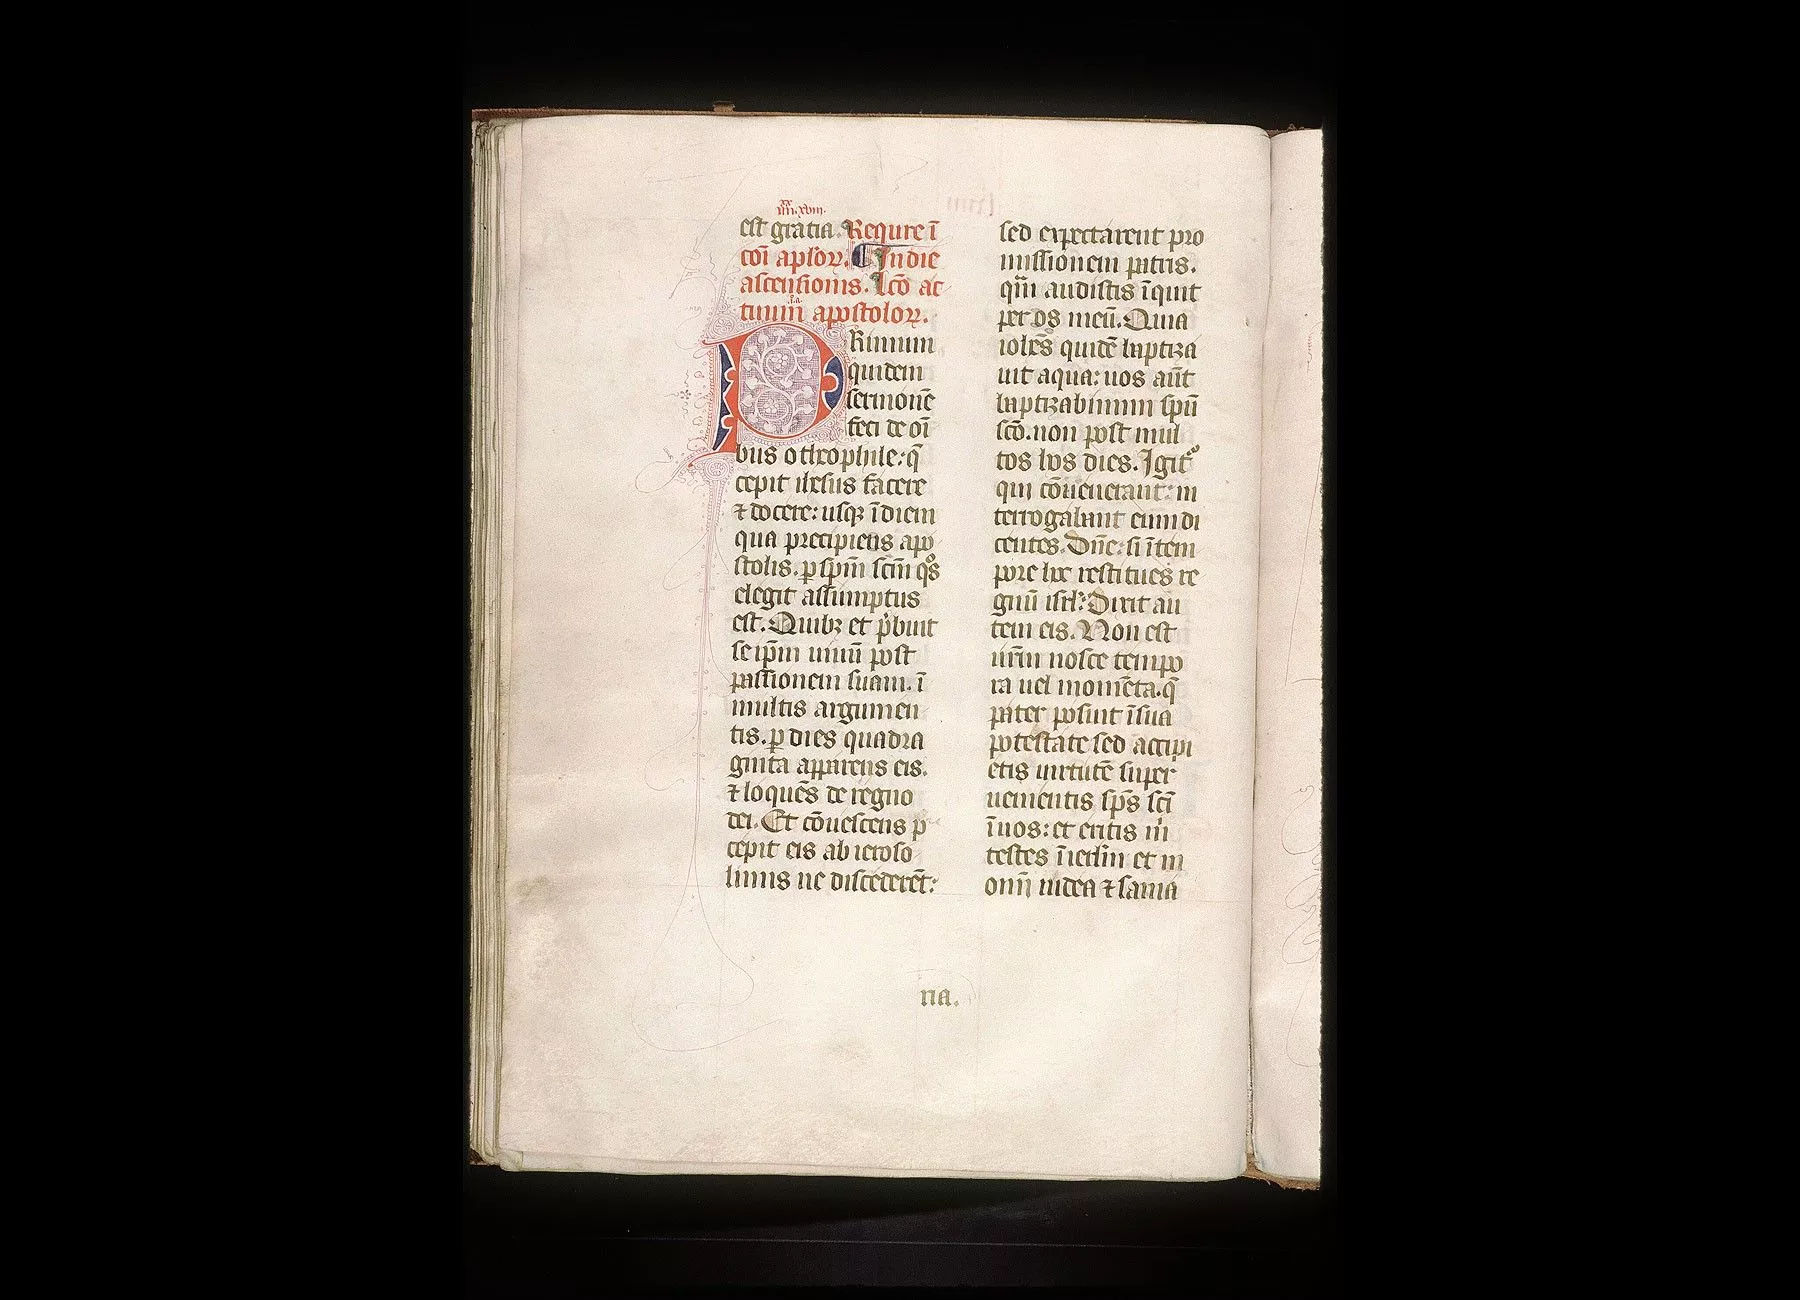 iiii.xviii.
est gratia. Require ī
cōi aplōꝝ. ¶ In die
ascensionis. lcō ac
tuum apostoloꝝ.
PRimum
quidem
sermonē
feci de oī
bus o theophile: q̄
cepit ihesus facere
⁊ docere: usqꝫ ī diem
qua precipiens apo
stolis. ꝑ spm̄ scm̄ qͦs
elegit assumptus
est. Quibꝫ et p̄buit
se ip̄m uiuū post
passionem suam. ī
multis argumen
tis. ꝑ dies quadra
ginta apparens eis.
⁊ loquēs de regno
dei. Et cōuescens p̄
cepit eis ab ieroso
limis ne discederēt:
sed expectarent pro
missionem patris.
qm̄ audistis īquit
per os meū. Quia
iohēs quidē baptiza
uit aqua: uos aūt
baptizabimini spū
scō. non post mul
tos hos dies. Igitͬ
qui cōuenerant: in
terrogabant eum di
centes. Dn̄e: si ī tem
pore hoc restitues re
gnū isrl̄: Dixit au
tem eis. Non est
ur̄m nosce tempo
ra uel momēta. q̄
pater posuit ī sua
potestate sed accipi
etis uirtutē super
uenientis sp̄s sc̄i
ī uos: et eritis m̍
testes ī ierl̄m et in
omī iudea ⁊ sama
ria.